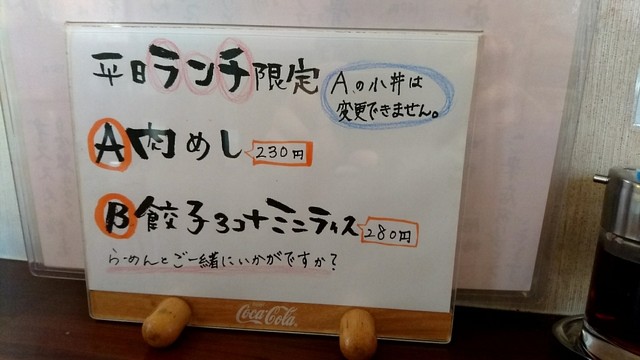 平日ランチ限定
Aの小丼は
変更できません。
A 肉めし 230円
B 餃子3コ+ミニライス 280円
らーめんとご一緒にいかがですか?
Coca-Cola